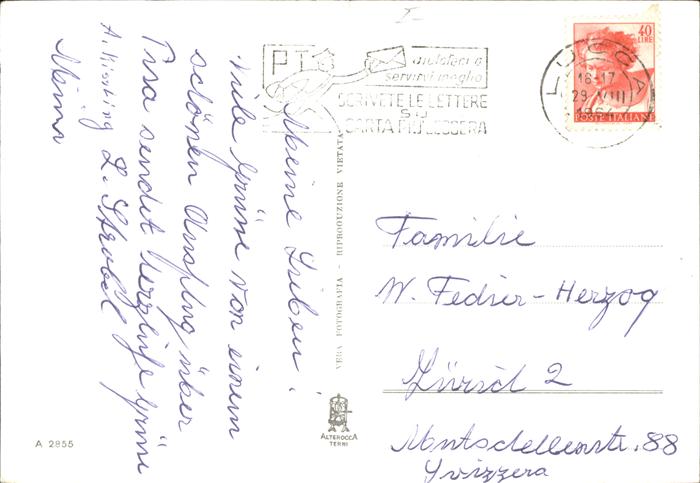 I-
PT
aiutateci a
servirvi meglio
SCRIVETE LE LETTERE
SU
CARTA PIÙ LEGGERA
LUCCA
16-17
29.VIII
1964
40
LIRE
POSTE ITALIANE
Meine Lieben!
Viele Grüsse von einem
schönen Ausflug über
Pisa sendet herzliche Grüsse
L. Strobel
Mima
VERA FOTOGRAFIA - RIPRODUZIONE VIETATA
Familie
W. Fedier-Herzog
Zürich 2
88
Svizzera
ALTEROCCA
TERNI
A 2855